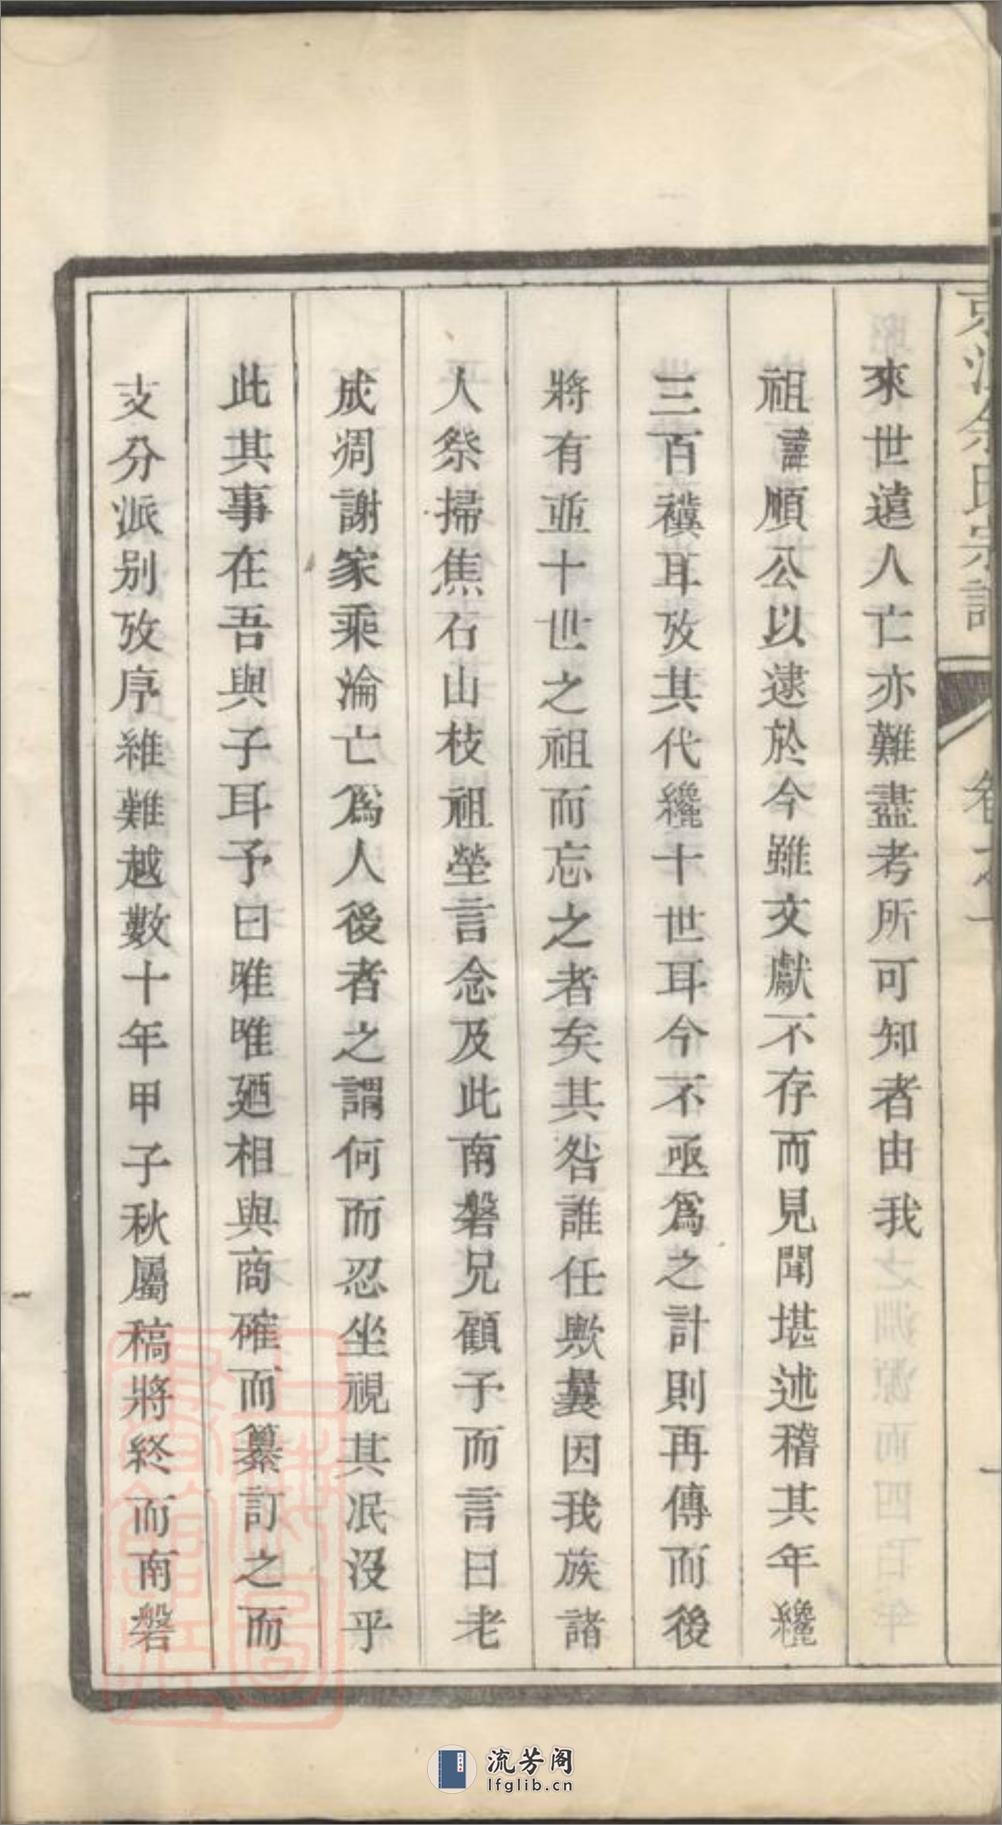 余氏宗譜
卷之一
來世遠人亡亦難盡考所可知者由我
祖諱順公以逮於今雖文獻不存而見聞堪述稽其年纔
三百禩耳攷其代纔十世耳今不亟爲之計則再傳而後
將有並十世之祖而忘之者矣其咎誰任歟曩因我族諸
人祭掃焦石山枝祖塋言念及此南磐兄顧予而言曰老
成凋謝家乘淪亡爲人後者之謂何而忍坐視其泯沒乎
此其事在吾與子耳予曰唯唯廼相與商確而纂訂之而
支分派别攷序維難越數十年甲子秋屬稿將終而南磐
上海圖書館藏
流芳阁
lfglib.cn